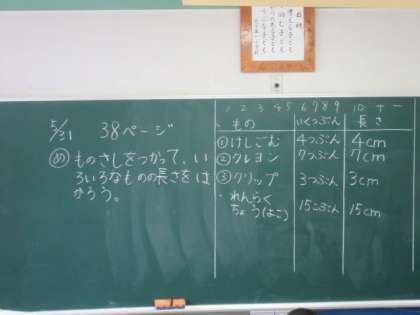 5/21 38ページ
め ものさしをつかって、い
ろいろなものの長さをは
かろう。
1 2 3 4 5 6 7 8 9 10 + -
もの いくつぶん 長さ
① けしごむ 4つぶん 4cm
② クレヨン 7つぶん 7cm
③ クリップ 3つぶん 3cm
・ れんらく
ちょう(よこ) 15こぶん 15cm